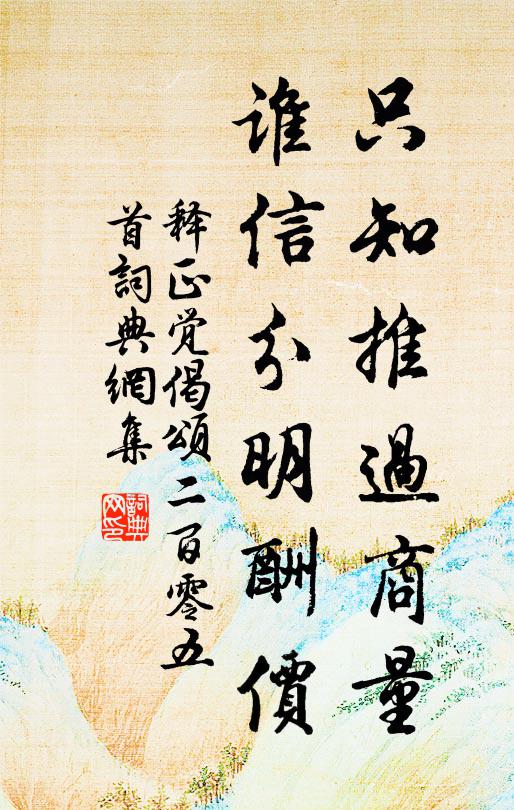 只知推過商量
誰信分明酬價
释正觉偈頌二百零五
首詞典網集
詞典網印